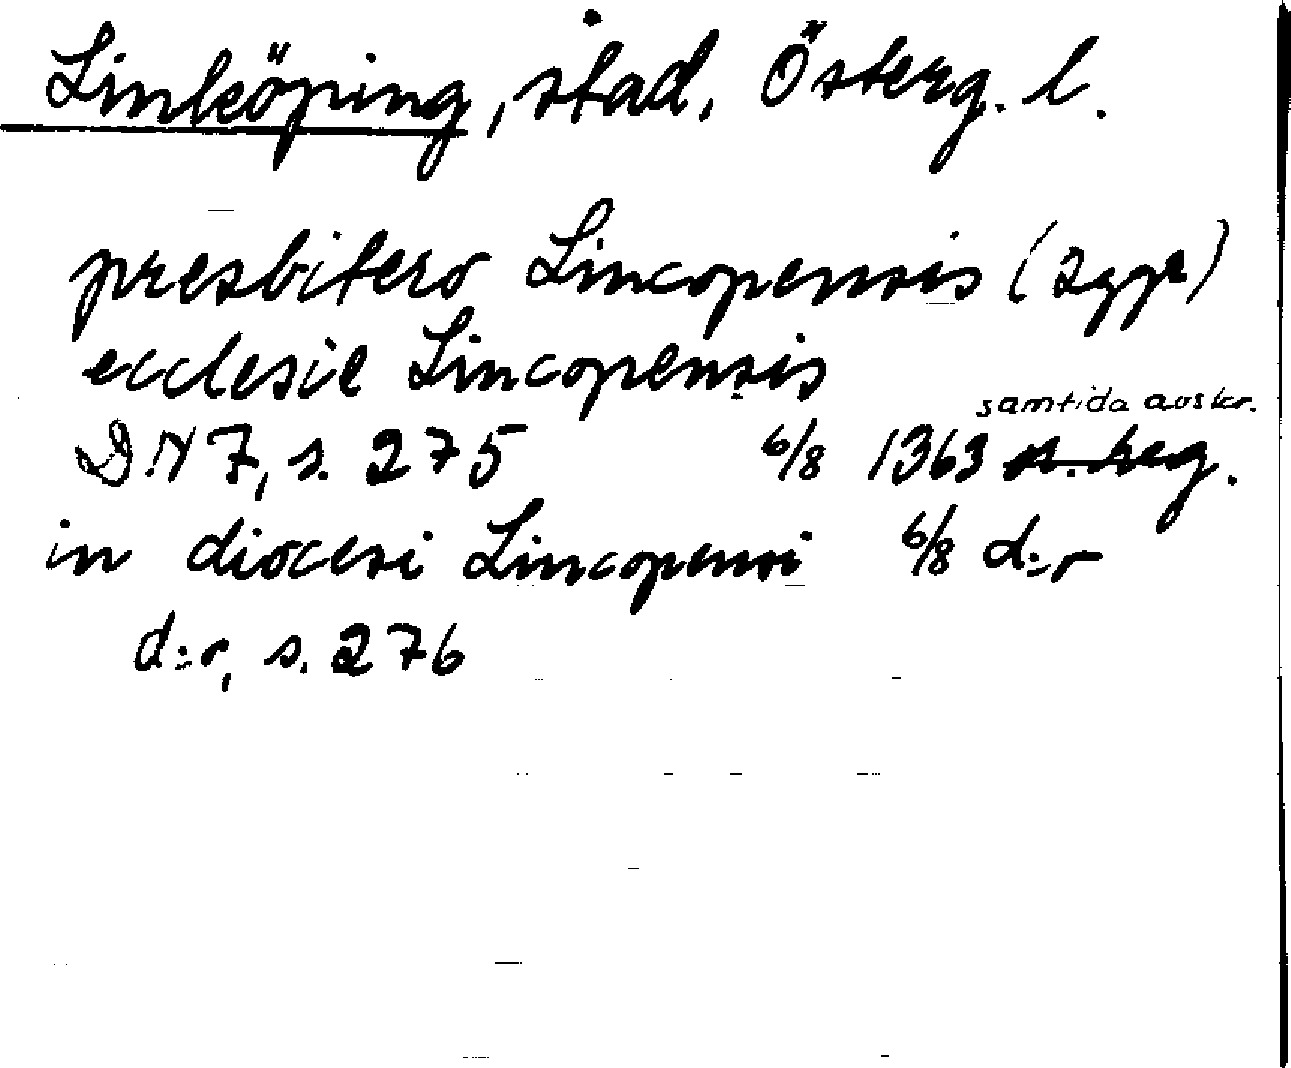 Linköping, stad, Österg. l.
presbitero Lincopensis (2 ggr)
ecclesie Lincopensis
samtida avskr.
DN 7, s. 275 6/8 1363 or. perg.
in diocesi Lincopensi 6/8 d:o
d:o, s. 276